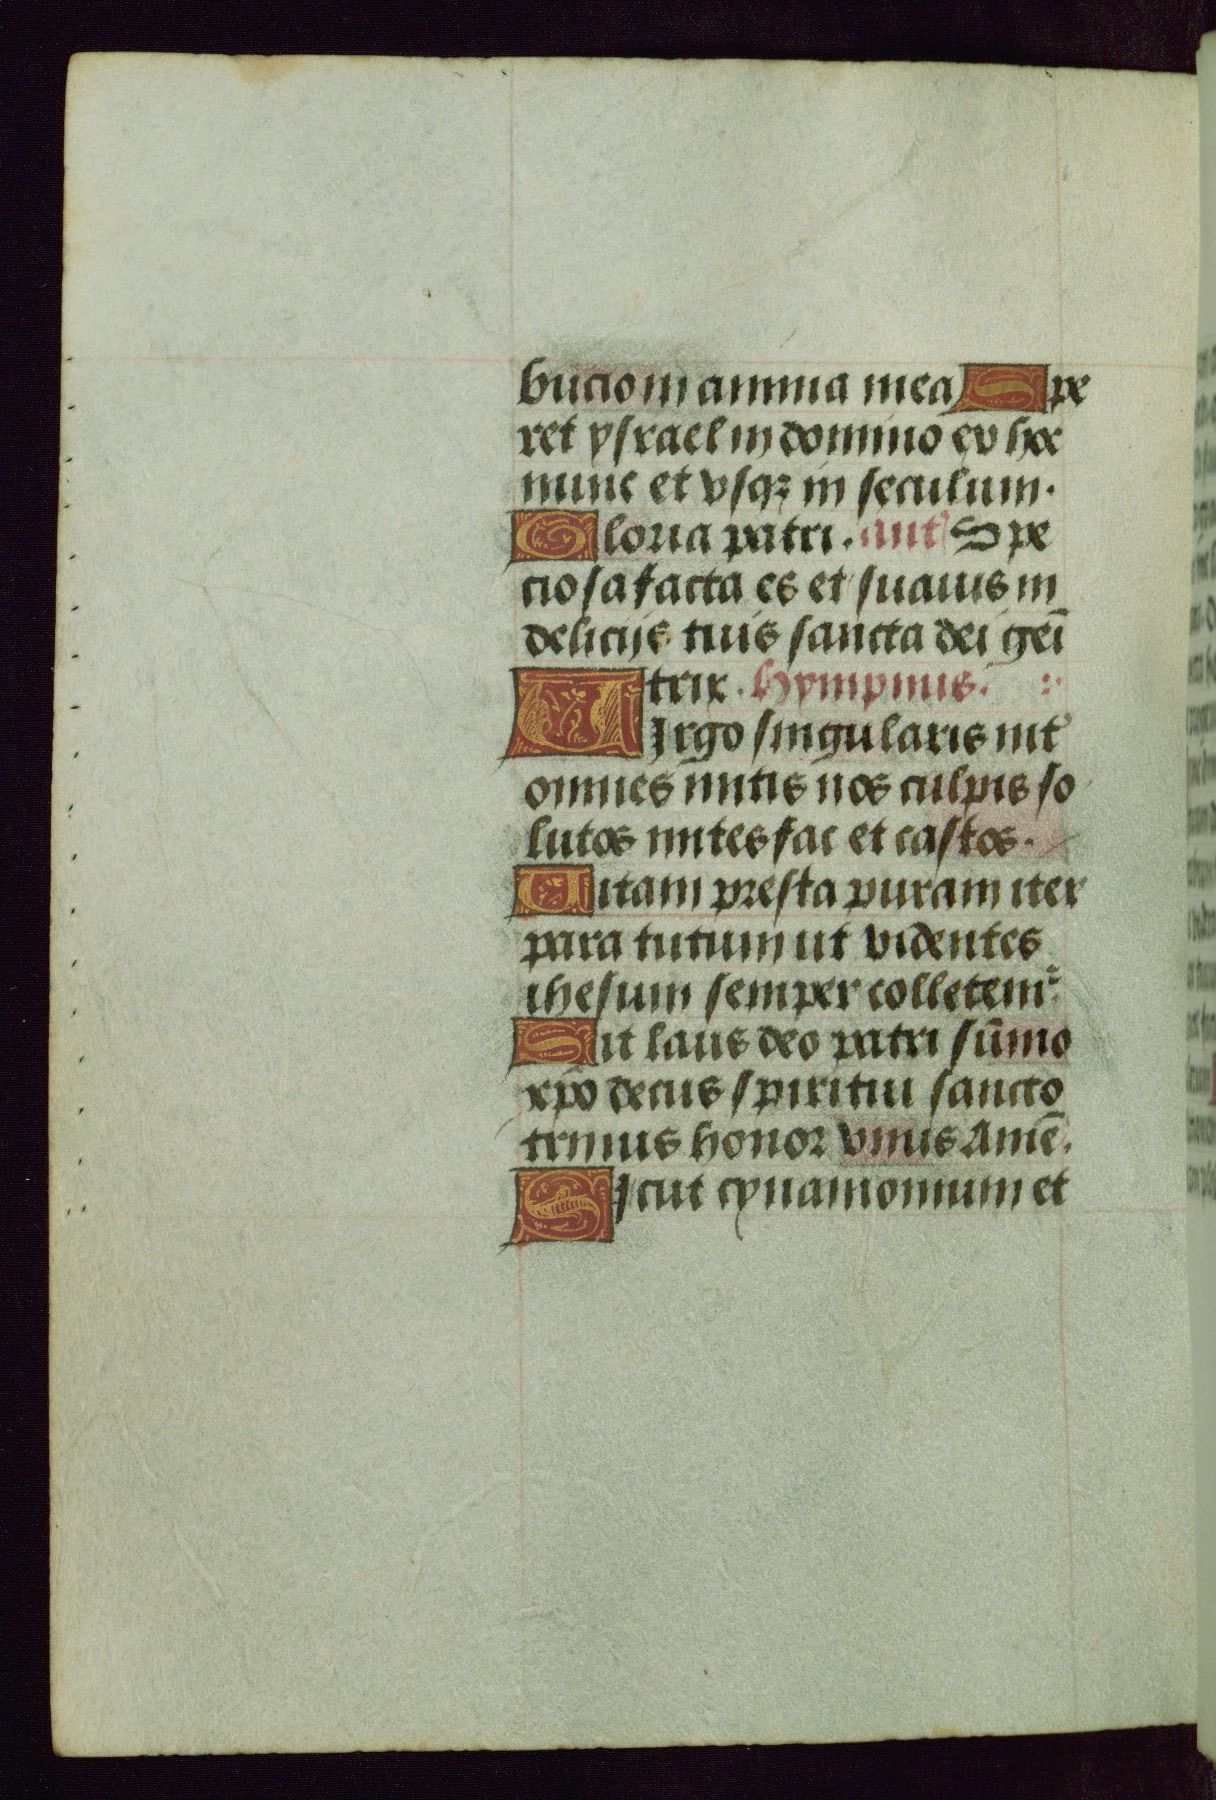 bucio in anima mea Spe
ret ysrael in domino ex hoc
nunc et vsqꝫ in seculum.
Gloria patri. ant' Spe
ciosa facta es et suauis in
delicijs tuis sancta dei geni
trix. hympnus.
Uirgo singularis int'
omnes mitis nos culpis so
lutos mites fac et castos.
Uitam presta puram iter
para tutum ut videntes
ihesum semper colletem'
Sit laus deo patri sūmo
xpo decus spiritui sancto
trinus honor vnus Amē.
Sicut cynamomum et